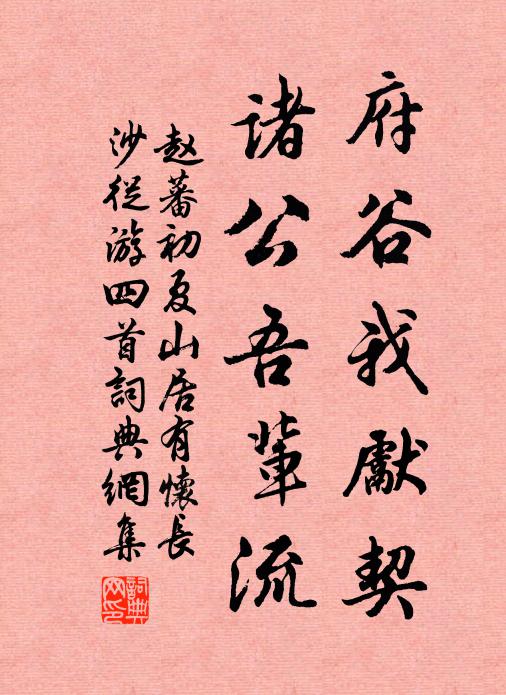 府谷我獻契
諸公吾輩流
赵蕃初夏山居有懷長
沙從游四首詞典網集
詞典
网印